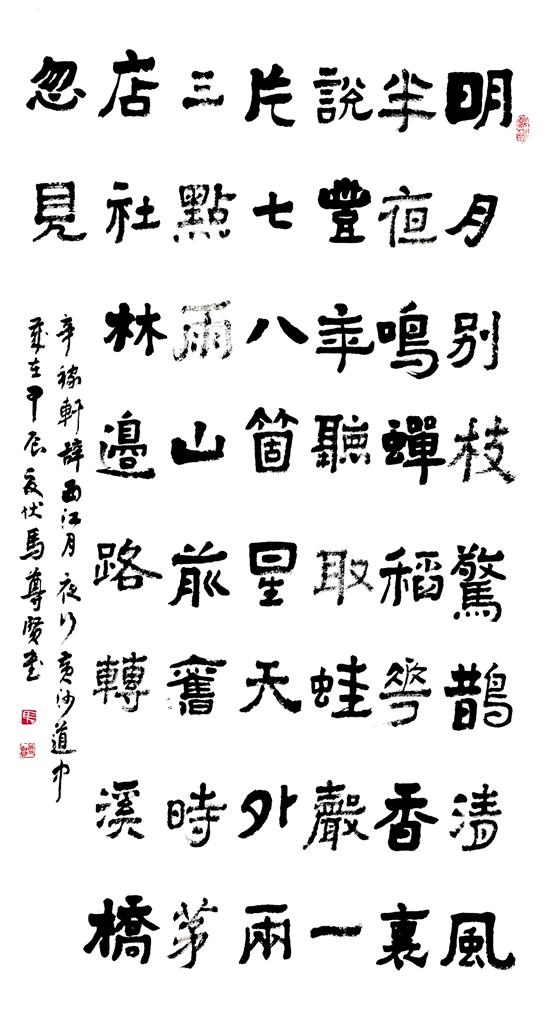 明月别枝驚鵲清風
半夜鳴蟬稻花香裏
說豐年聽取蛙聲一
片七八箇星天外兩
三點雨山前舊時茅
店社林邊路轉溪橋
忽見
辛稼軒辭西江月夜行黄沙道中
歲在甲辰夏伏馬尊賢書